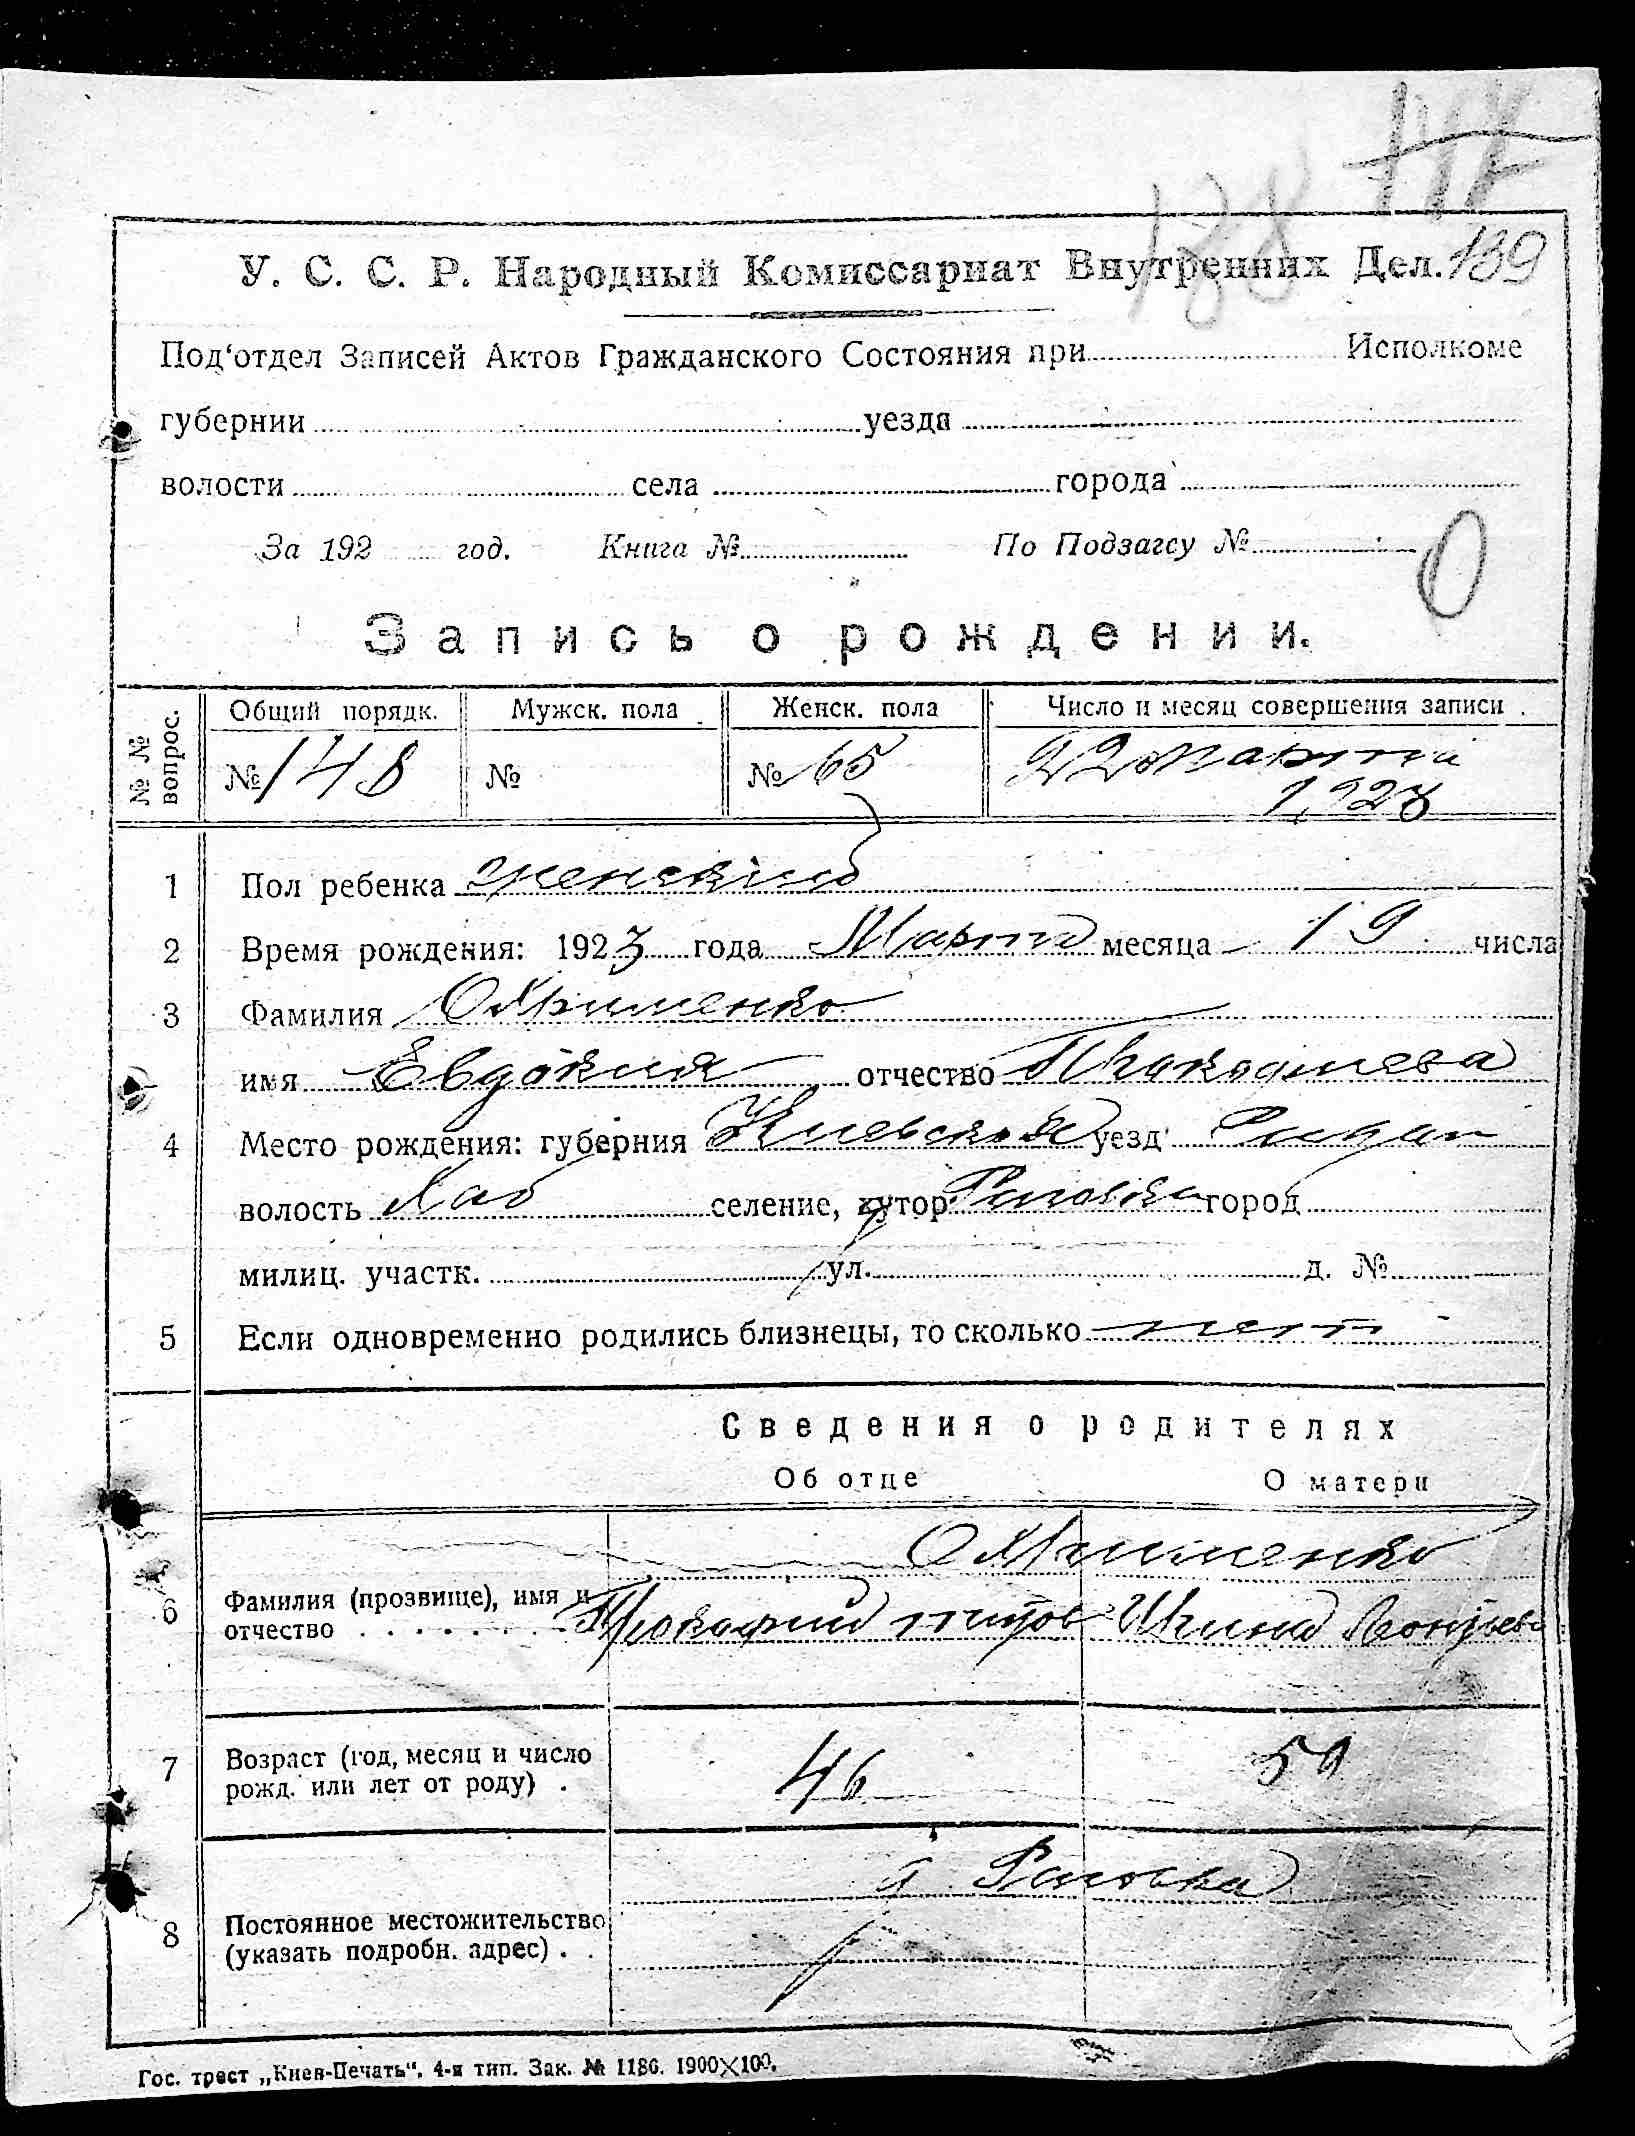 188
139
У. С. С. Р. Народный Комиссариат Внутренних Дел.
Под‘отдел Записей Актов Гражданского Состояния при Исполкоме
губернии уезда
волости села города
За 192 год. Книга № По Подзагсу №
0
Запись о рождении.
№ № вопрос. Общий порядк. Мужск. пола Женск. пола Число и месяц совершения записи
№ 148 № № 65 22 марта
1923
1 Пол ребенка женский
2 Время рождения: 1923 года Марта месяца 19 числа
3 Фамилия Охрименко
имя Евдокия отчество Прокофиева
4 Место рождения: губерния Киевская уезд
волость Хаб селение, хутор город
милиц. участк. ул. д. №
5 Если одновременно родились близнецы, то сколько нет
Сведения о родителях
Об отце О матери
Охрименко
6 Фамилия (прозвище), имя и
отчество Прокофий титов Ирина Леонтьева
7 Возраст (год, месяц и число
рожд. или лет от роду) . 46
8 Постоянное местожительство
(указать подробн. адрес) . .
Гос. трест „Киев-Печать“. 4-я тип. Зак. № 1186. 1900×100.